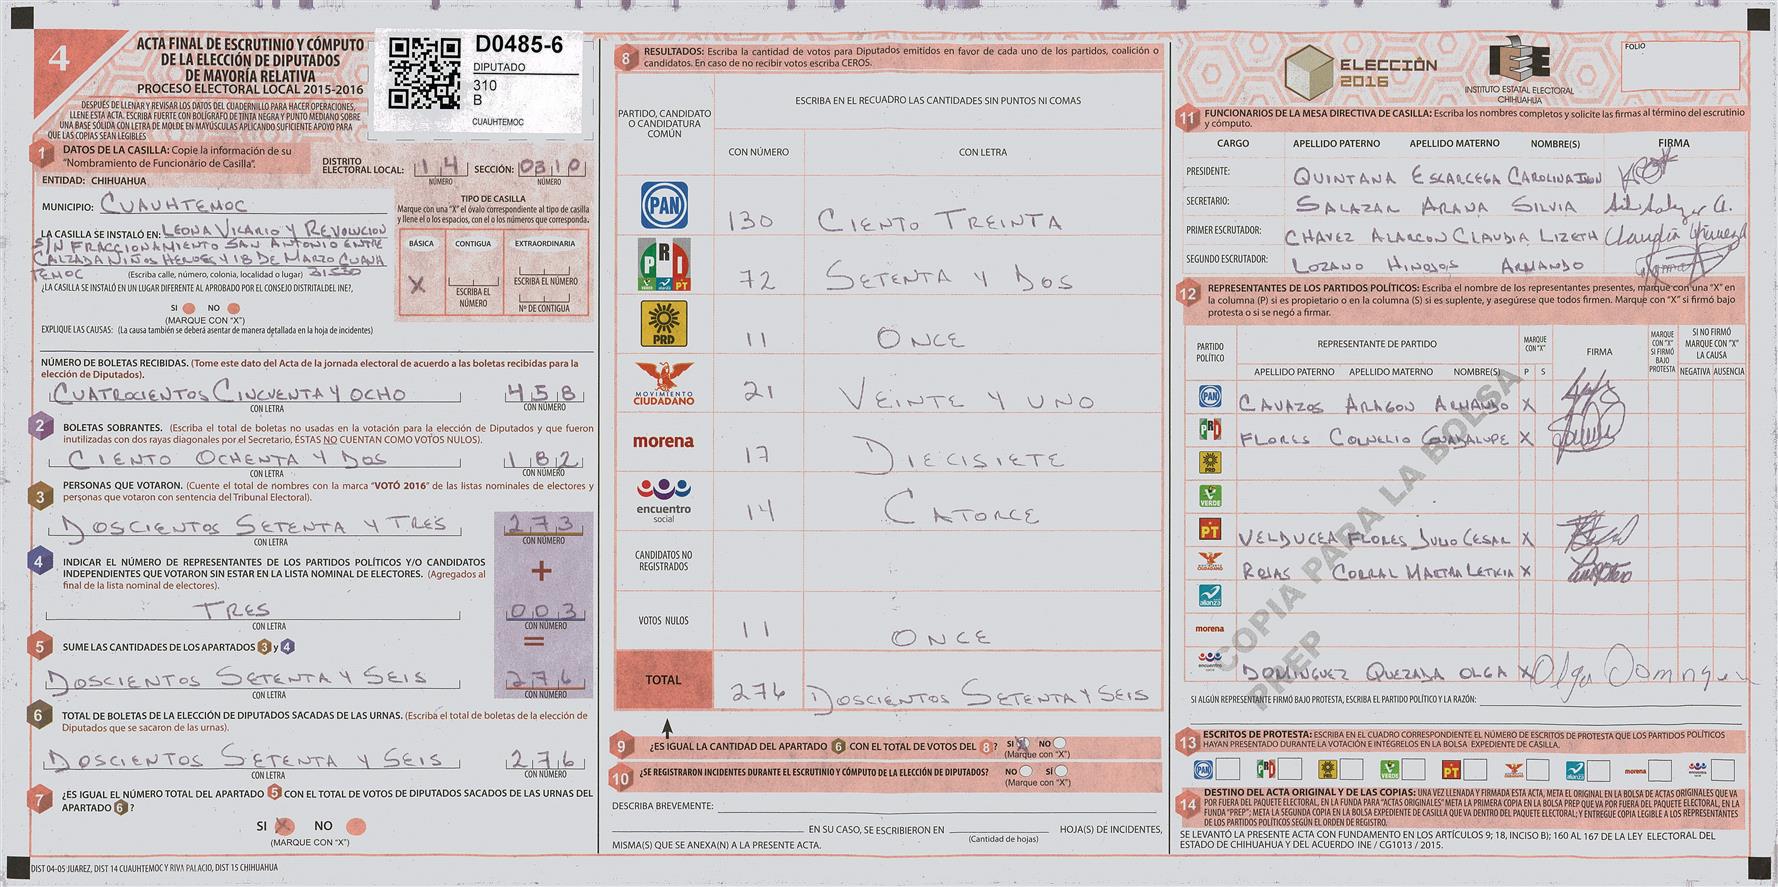 4
ACTA FINAL DE ESCRUTINIO Y CÓMPUTO
DE LA ELECCIÓN DE DIPUTADOS
DE MAYORÍA RELATIVA
PROCESO ELECTORAL LOCAL 2015-2016
DESPUÉS DE LLENAR Y REVISAR LOS DATOS DEL CUADERNILLO PARA HACER OPERACIONES,
LLENE ESTA ACTA. ESCRIBA FUERTE CON BOLÍGRAFO DE TINTA NEGRA Y PUNTO MEDIANO SOBRE
UNA BASE SÓLIDA CON LETRA DE MOLDE EN MAYÚSCULAS APLICANDO SUFICIENTE APOYO PARA
QUE LAS COPIAS SEAN LEGIBLES
D0485-6
DIPUTADO
310
B
CUAUHTEMOC
1 DATOS DE LA CASILLA: Copie la información de su
"Nombramiento de Funcionario de Casilla".
DISTRITO
ELECTORAL LOCAL: 14 SECCIÓN: 0310
NÚMERO NÚMERO
ENTIDAD: CHIHUAHUA
MUNICIPIO: CUAUHTEMOC
LA CASILLA SE INSTALÓ EN: LEONA VICARIO Y REVOLUCION
S/N FRACCIONAMIENTO SAN ANTONIO ENTRE
CALZADA NIÑOS HEROES Y 18 DE MARZO CUAUH
TEMOC (Escriba calle, número, colonia, localidad o lugar) 31530
¿LA CASILLA SE INSTALÓ EN UN LUGAR DIFERENTE AL APROBADO POR EL CONSEJO DISTRITAL DEL INE?,
SI NO
(MARQUE CON "X")
EXPLIQUE LAS CAUSAS: (La causa también se deberá asentar de manera detallada en la hoja de incidentes)
TIPO DE CASILLA
Marque con una "X" el óvalo correspondiente al tipo de casilla
y llene el o los espacios, con el o los números que corresponda.
BÁSICA CONTIGUA EXTRAORDINARIA
X
ESCRIBA EL NÚMERO
ESCRIBA EL NÚMERO
Nº DE CONTIGUA
NÚMERO DE BOLETAS RECIBIDAS. (Tome este dato del Acta de la jornada electoral de acuerdo a las boletas recibidas para la
elección de Diputados).
CUATROCIENTOS CINCUENTA Y OCHO 458
CON LETRA CON NÚMERO
2 BOLETAS SOBRANTES. (Escriba el total de boletas no usadas en la votación para la elección de Diputados y que fueron
inutilizadas con dos rayas diagonales por el Secretario, ÉSTAS NO CUENTAN COMO VOTOS NULOS).
CIENTO OCHENTA Y DOS 182
CON LETRA CON NÚMERO
3 PERSONAS QUE VOTARON. (Cuente el total de nombres con la marca "VOTÓ 2016" de las listas nominales de electores y
personas que votaron con sentencia del Tribunal Electoral).
DOSCIENTOS SETENTA Y TRES 273
CON LETRA CON NÚMERO
+
4 INDICAR EL NÚMERO DE REPRESENTANTES DE LOS PARTIDOS POLÍTICOS Y/O CANDIDATOS
INDEPENDIENTES QUE VOTARON SIN ESTAR EN LA LISTA NOMINAL DE ELECTORES. (Agregados al
final de la lista nominal de electores).
TRES 003
CON LETRA CON NÚMERO
=
5 SUME LAS CANTIDADES DE LOS APARTADOS 3 y 4
DOSCIENTOS SETENTA Y SEIS 276
CON LETRA CON NÚMERO
6 TOTAL DE BOLETAS DE LA ELECCIÓN DE DIPUTADOS SACADAS DE LAS URNAS. (Escriba el total de boletas de la elección de
Diputados que se sacaron de las urnas).
DOSCIENTOS SETENTA Y SEIS 276
CON LETRA CON NÚMERO
7 ¿ES IGUAL EL NÚMERO TOTAL DEL APARTADO 5 CON EL TOTAL DE VOTOS DE DIPUTADOS SACADOS DE LAS URNAS DEL
APARTADO 6?
SI X NO
(MARQUE CON "X")
DIST 04-05 JUAREZ, DIST 14 CUAUHTEMOC Y RIVA PALACIO, DIST 15 CHIHUAHUA
8 RESULTADOS: Escriba la cantidad de votos para Diputados emitidos en favor de cada uno de los partidos, coalición o
candidatos. En caso de no recibir votos escriba CEROS.
PARTIDO, CANDIDATO
O CANDIDATURA
COMÚN
ESCRIBA EN EL RECUADRO LAS CANTIDADES SIN PUNTOS NI COMAS
CON NÚMERO CON LETRA
PAN 130 CIENTO TREINTA
PRI VERDE PT alianza 72 SETENTA Y DOS
PRD 11 ONCE
MOVIMIENTO CIUDADANO 21 VEINTE Y UNO
morena 17 DIECISIETE
encuentro social 14 CATORCE
CANDIDATOS NO
REGISTRADOS
VOTOS NULOS 11 ONCE
TOTAL 276 DOSCIENTOS SETENTA Y SEIS
9 ¿ES IGUAL LA CANTIDAD DEL APARTADO 6 CON EL TOTAL DE VOTOS DEL 8? SI X NO
(Marque con "X")
10 ¿SE REGISTRARON INCIDENTES DURANTE EL ESCRUTINIO Y CÓMPUTO DE LA ELECCIÓN DE DIPUTADOS? NO SÍ
(Marque con "X")
DESCRIBA BREVEMENTE:
EN SU CASO, SE ESCRIBIERON EN HOJA(S) DE INCIDENTES,
(Cantidad de hojas)
MISMA(S) QUE SE ANEXA(N) A LA PRESENTE ACTA.
ELECCIÓN
2016
IEE
INSTITUTO ESTATAL ELECTORAL
CHIHUAHUA
FOLIO
11 FUNCIONARIOS DE LA MESA DIRECTIVA DE CASILLA: Escriba los nombres completos y solicite las firmas al término del escrutinio
y cómputo.
CARGO APELLIDO PATERNO APELLIDO MATERNO NOMBRE(S) FIRMA
PRESIDENTE: QUINTANA ESCARCEGA CAROLINA
SECRETARIO: SALAZAR ARANA SILVIA
PRIMER ESCRUTADOR: CHAVEZ ALARCON CLAUDIA LIZETH
SEGUNDO ESCRUTADOR: LOZANO HINOJOS ARMANDO
12 REPRESENTANTES DE LOS PARTIDOS POLÍTICOS: Escriba el nombre de los representantes presentes, marque con una "X" en
la columna (P) si es propietario o en la columna (S) si es suplente, y asegúrese que todos firmen. Marque con "X" si firmó bajo
protesta o si se negó a firmar.
PARTIDO POLÍTICO
REPRESENTANTE DE PARTIDO
MARQUE CON "X"
FIRMA
MARQUE CON "X" SI FIRMÓ BAJO PROTESTA
SI NO FIRMÓ MARQUE CON "X" LA CAUSA
APELLIDO PATERNO APELLIDO MATERNO NOMBRE(S) P S
NEGATIVA AUSENCIA
PAN CAVAZOS ARAGON ARMANDO X
PRI FLORES CORNELIO GUADALUPE X
PRD
VERDE
PT VELDUCEA FLORES JULIO CESAR X
ROJAS CORRAL MARTHA LETICIA X
alianza
morena
encuentro social DOMINGUEZ QUEZADA OLGA X Olga Dominguez
COPIA PARA LA BOLSA
PREP
SI ALGÚN REPRESENTANTE FIRMÓ BAJO PROTESTA, ESCRIBA EL PARTIDO POLÍTICO Y LA RAZÓN:
13 ESCRITOS DE PROTESTA: ESCRIBA EN EL CUADRO CORRESPONDIENTE EL NÚMERO DE ESCRITOS DE PROTESTA QUE LOS PARTIDOS POLÍTICOS
HAYAN PRESENTADO DURANTE LA VOTACIÓN E INTÉGRELOS EN LA BOLSA EXPEDIENTE DE CASILLA.
PAN PRI PRD VERDE PT alianza morena
14 DESTINO DEL ACTA ORIGINAL Y DE LAS COPIAS: UNA VEZ LLENADA Y FIRMADA ESTA ACTA, META EL ORIGINAL EN LA BOLSA DE ACTAS ORIGINALES QUE VA
POR FUERA DEL PAQUETE ELECTORAL, EN LA FUNDA PARA "ACTAS ORIGINALES" META LA PRIMERA COPIA EN LA BOLSA PREP QUE VA POR FUERA DEL PAQUETE ELECTORAL, EN LA
FUNDA "PREP"; META LA SEGUNDA COPIA EN LA BOLSA EXPEDIENTE DE CASILLA QUE VA DENTRO DEL PAQUETE ELECTORAL; Y ENTREGUE COPIA LEGIBLE A LOS REPRESENTANTES
DE LOS PARTIDOS POLÍTICOS SEGÚN EL ORDEN DE REGISTRO.
SE LEVANTÓ LA PRESENTE ACTA CON FUNDAMENTO EN LOS ARTÍCULOS 9; 18, INCISO B); 160 AL 167 DE LA LEY ELECTORAL DEL
ESTADO DE CHIHUAHUA Y DEL ACUERDO INE / CG1013 / 2015.